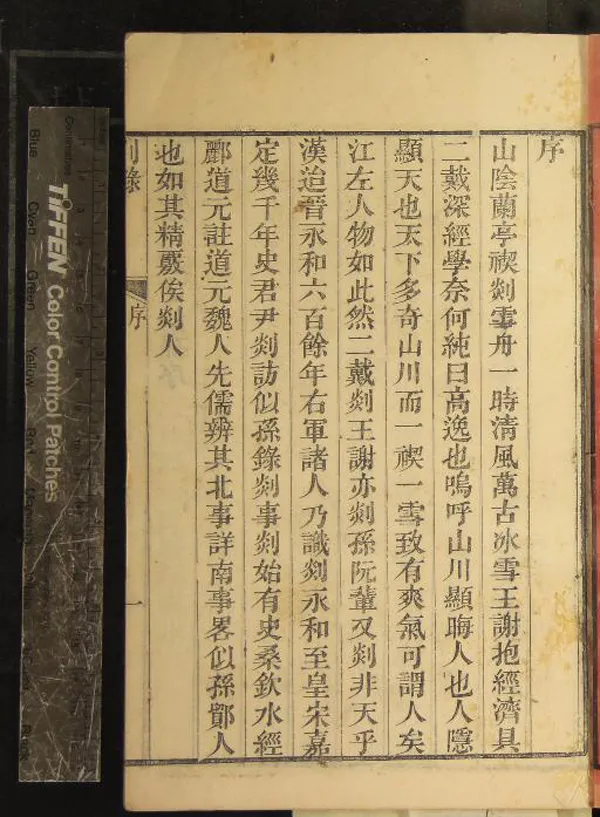 序
山陰蘭亭禊剡雪舟一時清風萬古冰雪王謝抱經濟具
二戴深經學奈何純曰高逸也嗚呼山川顯晦人也人隱
顯天也天下多奇山川而一禊一雪致有爽氣可謂人矣
江左人物如此然二戴剡王謝亦剡孫阮輩又剡非天乎
漢迨晉永和六百餘年右軍諸人乃識剡永和至皇宋嘉
定幾千年史君尹剡訪似孫錄剡事剡始有史桑欽水經
酈道元註道元魏人先儒辨其北事詳南事畧似孫鄞人
也如其精覈俟剡人
剡錄 序 一
TIFFEN Color Control Patches
Blue Cyan Green Yellow